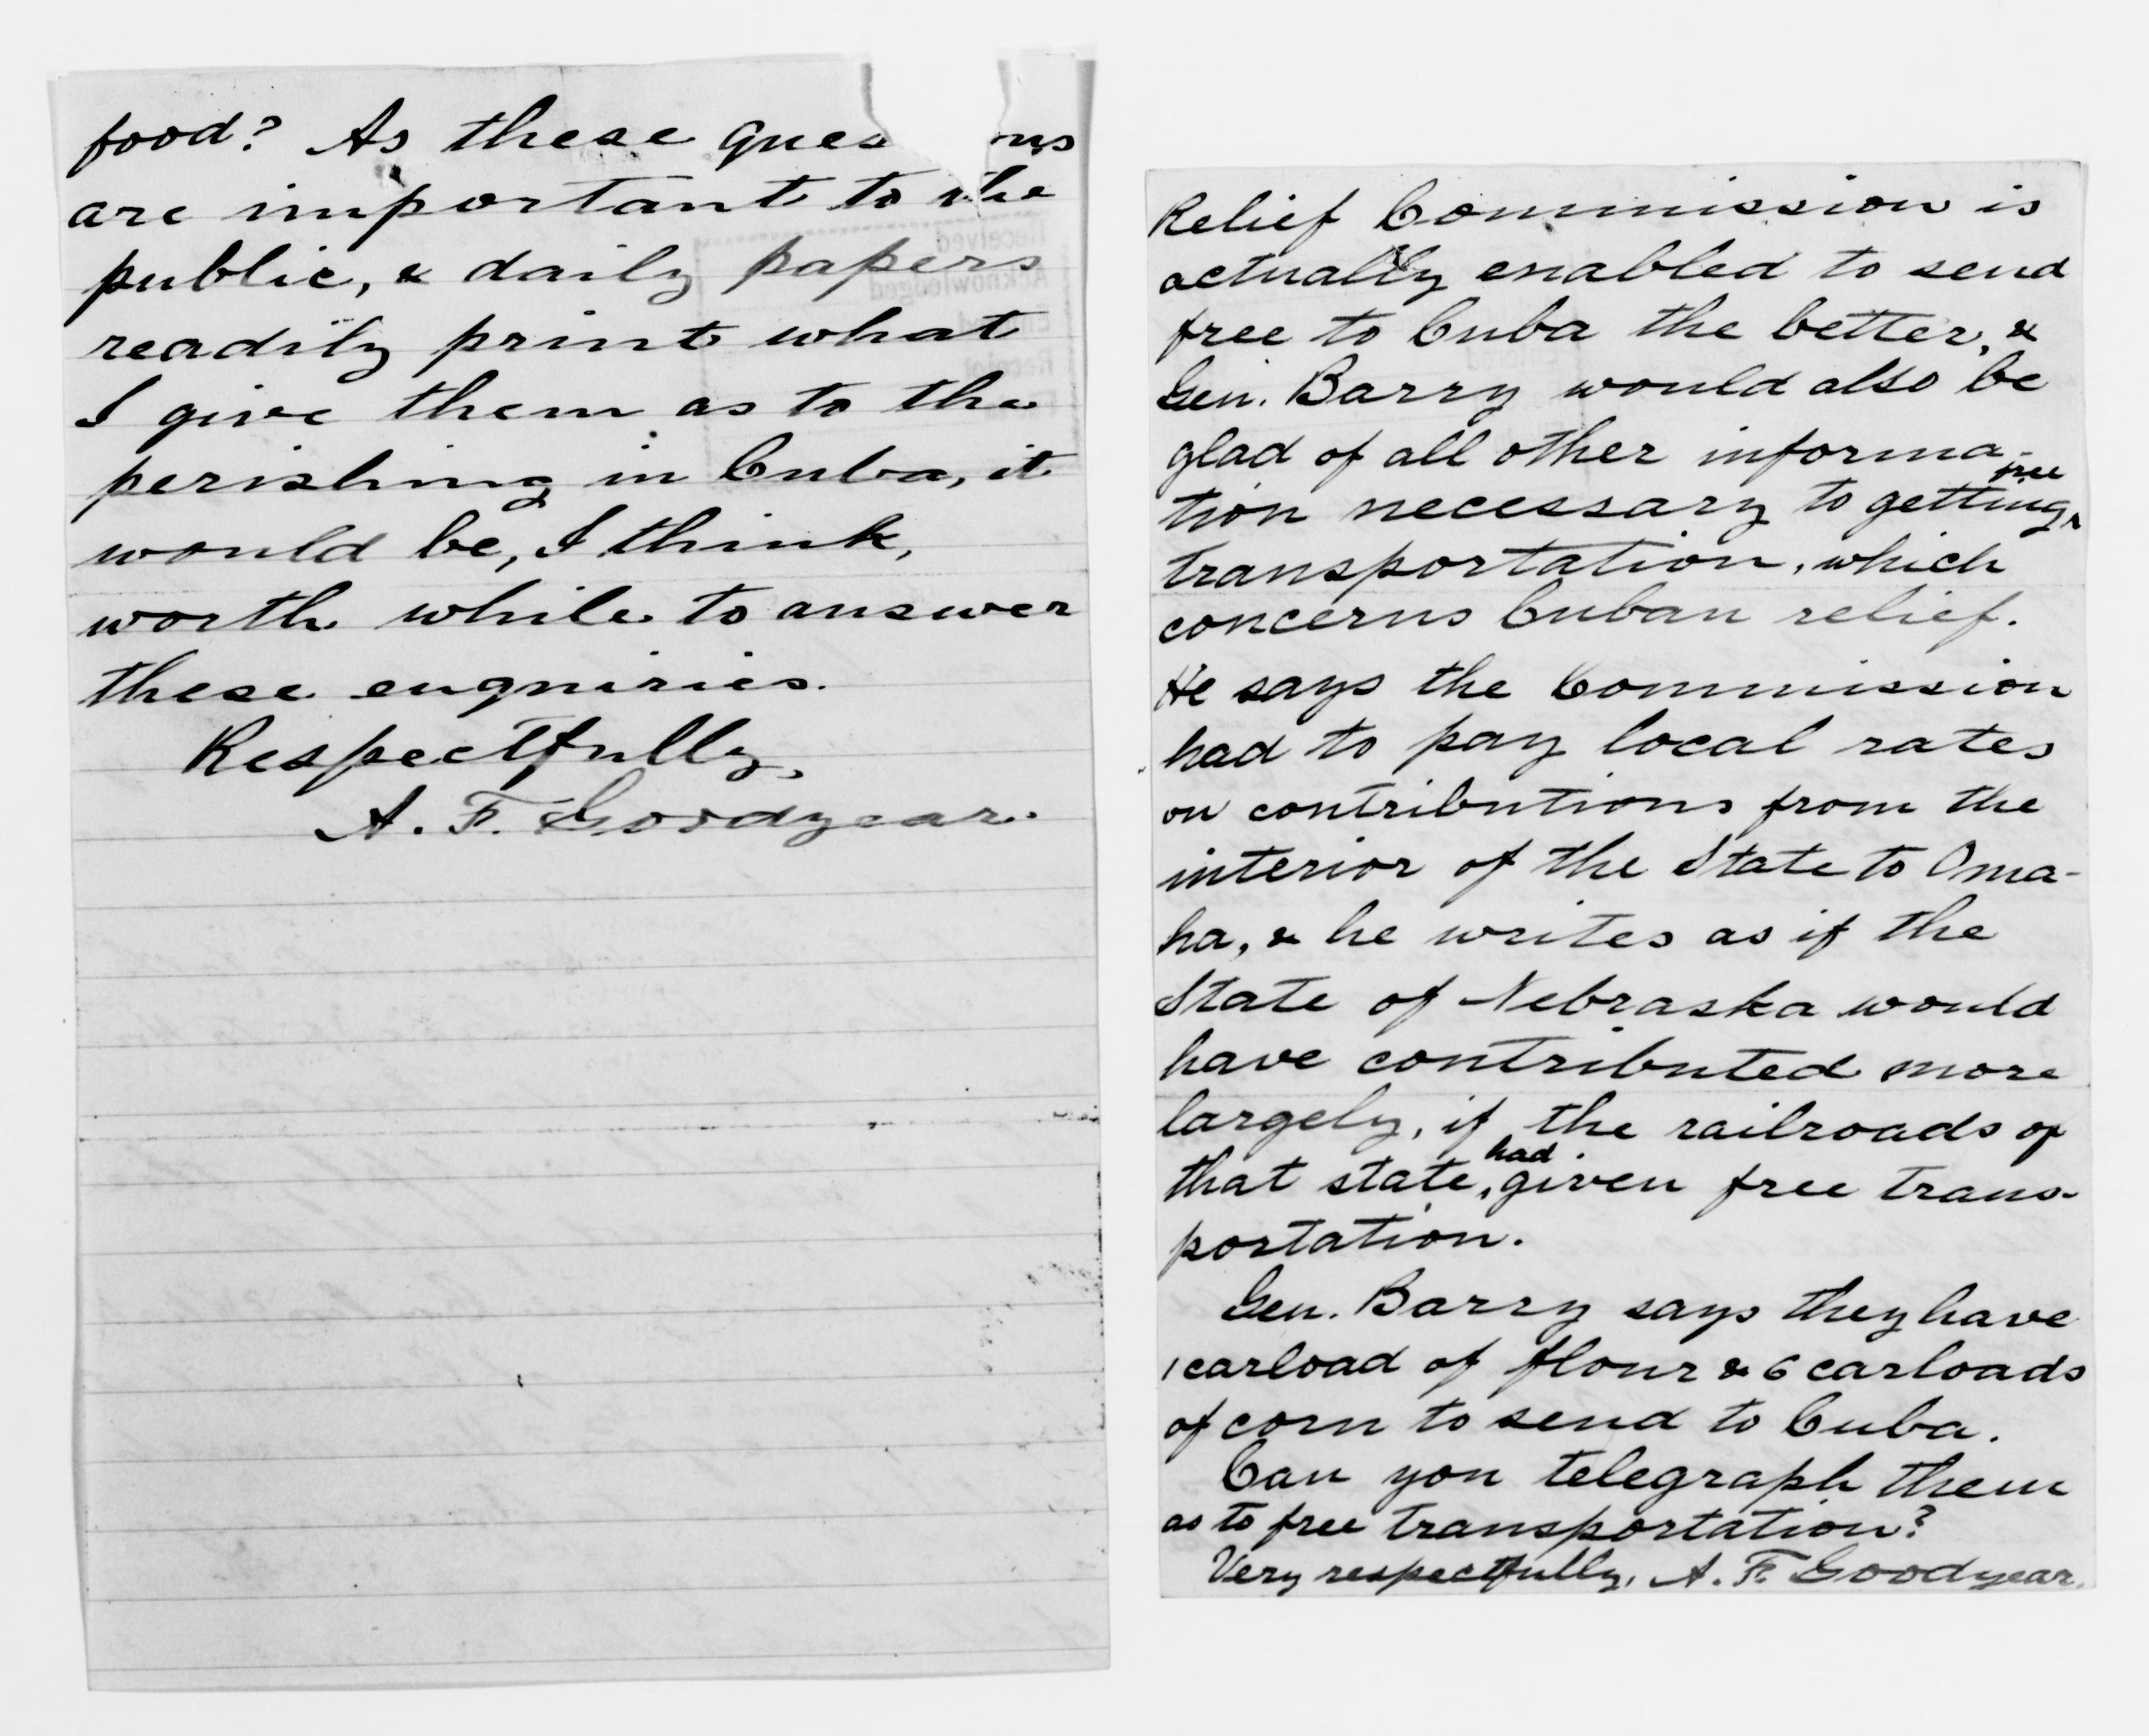 food? As these ques ons
are important to the
public, & daily papers
readily print what
I give them as to the
perishing in Cuba, it
would be, I think,
worth while to answer
these enquiries.
Respectfully,
A. F. Goodyear.
Relief Commission is
actually enabled to send
free to Cuba the better, &
Gen. Barry would also be
glad of all other informa-
tion necessary to getting free
transportation, which
concerns Cuban relief.
He says the Commission
had to pay local rates
on contributions from the
interior of the State to Oma-
ha, & he writes as if the
State of Nebraska would
have contributed more
largely, if the railroads of
that state, had given free trans-
portation.
Gen. Barry says they have
1 carload of flour & 6 carloads
of corn to send to Cuba.
Can you telegraph them
as to free transportation?
Very respectfully, A. F. Goodyear.
Received
Acknowledged